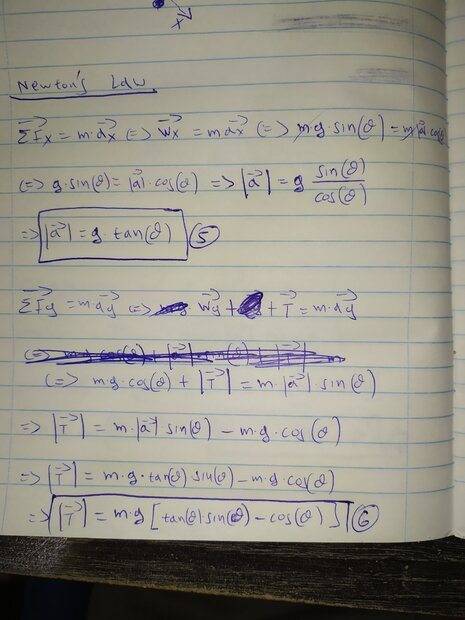 x
Newton's Law
Σ→Fx = m·→ax <=> →Wx = m→ax <=> m·g·sin(θ) = m|→a|cos(θ)
<=> g·sin(θ) = |→a|·cos(θ) => |→a| = g sin(θ)/cos(θ)
=> |→a| = g·tan(θ) (5)
Σ→Fy = m·→ay <=> →Wy + →T = m·→ay
<=> m·g·cos(θ) + |→T| = m·|→a|·sin(θ)
=> |→T| = m·|→a|·sin(θ) - m·g·cos(θ)
=> |→T| = m·g·tan(θ) sin(θ) - m·g·cos(θ)
=> |→T| = m·g [tan(θ)·sin(θ) - cos(θ)] (6)